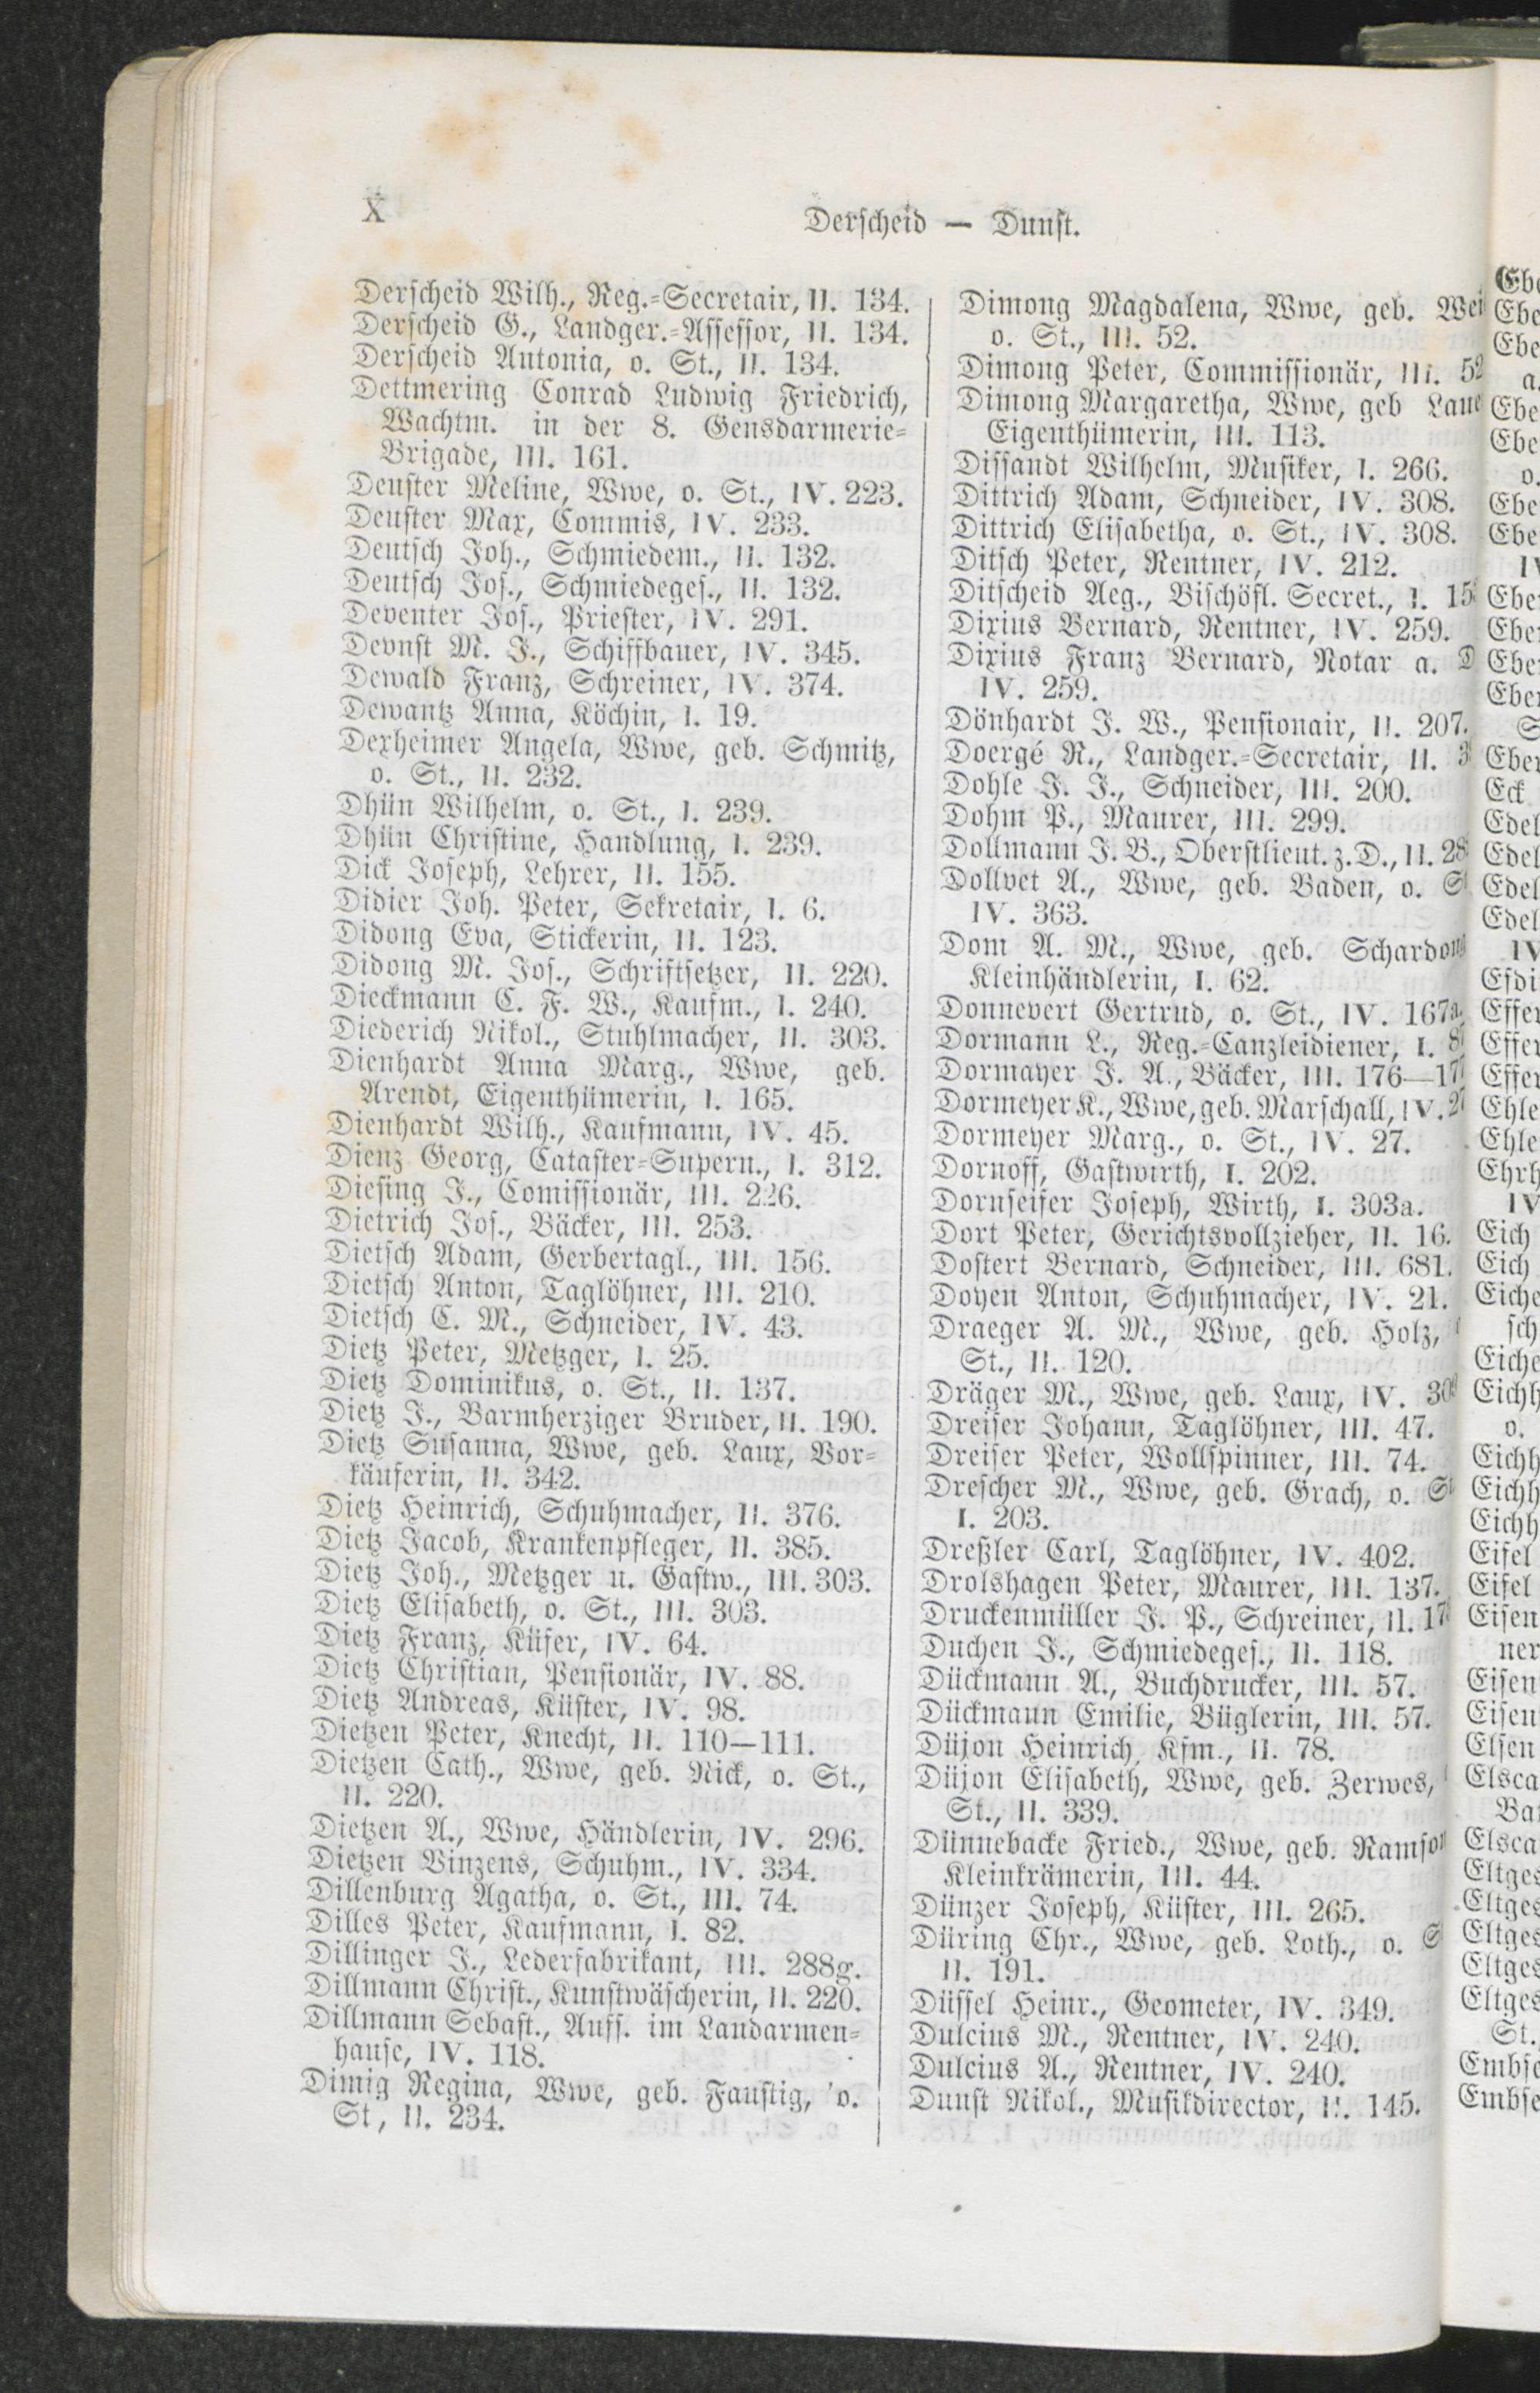 X
Derscheid — Dunst.
Derscheid Wilh., Reg.-Secretair, II. 134.
Derscheid G., Landger.-Assessor, II. 134.
Derscheid Antonia, o. St., II. 134.
Dettmering Conrad Ludwig Friedrich,
Wachtm. in der 8. Gensdarmerie-
Brigade, III. 161.
Deuster Meline, Wwe, o. St., IV. 223.
Deuster Max, Commis, IV. 233.
Deutsch Joh., Schmiedem., II. 132.
Deutsch Jos., Schmiedeges., II. 132.
Deventer Jos., Priester, IV. 291.
Devnst M. J., Schiffbauer, IV. 345.
Dewald Franz, Schreiner, IV. 374.
Dewantz Anna, Köchin, I. 19.
Dexheimer Angela, Wwe, geb. Schmitz,
o. St., II. 232.
Dhün Wilhelm, o. St., I. 239.
Dhün Christine, Handlung, I. 239.
Dick Joseph, Lehrer, II. 155.
Didier Joh. Peter, Sekretair, I. 6.
Didong Eva, Stickerin, II. 123.
Didong M. Jos., Schriftsetzer, II. 220.
Dieckmann C. F. W., Kaufm., I. 240.
Diederich Nikol., Stuhlmacher, II. 303.
Dienhardt Anna Marg., Wwe, geb.
Arendt, Eigenthümerin, I. 165.
Dienhardt Wilh., Kaufmann, IV. 45.
Dienz Georg, Cataster-Supern., I. 312.
Diesing J., Comissionär, III. 226.
Dietrich Jos., Bäcker, III. 253.
Dietsch Adam, Gerbertagl., III. 156.
Dietsch Anton, Taglöhner, III. 210.
Dietsch C. M., Schneider, IV. 43.
Dietz Peter, Metzger, I. 25.
Dietz Dominikus, o. St., II. 137.
Dietz J., Barmherziger Bruder, II. 190.
Dietz Susanna, Wwe, geb. Laux, Vor-
käuferin, II. 342.
Dietz Heinrich, Schuhmacher, II. 376.
Dietz Jacob, Krankenpfleger, II. 385.
Dietz Joh., Metzger u. Gastw., III. 303.
Dietz Elisabeth, o. St., III. 303.
Dietz Franz, Küfer, IV. 64.
Dietz Christian, Pensionär, IV. 88.
Dietz Andreas, Küster, IV. 98.
Dietzen Peter, Knecht, II. 110—111.
Dietzen Cath., Wwe, geb. Nick, o. St.,
II. 220.
Dietzen A., Wwe, Händlerin, IV. 296.
Dietzen Vinzens, Schuhm., IV. 334.
Dillenburg Agatha, o. St., III. 74.
Dilles Peter, Kaufmann, I. 82.
Dillinger J., Lederfabrikant, III. 288g.
Dillmann Christ., Kunstwäscherin, II. 220.
Dillmann Sebast., Auff. im Landarmen-
hause, IV. 118.
Dimig Regina, Wwe, geb. Faustig, o.
St, II. 234.
Dimong Magdalena, Wwe, geb. Wei
o. St., III. 52.
Dimong Peter, Commissionär, III. 52
Dimong Margaretha, Wwe, geb Laue
Eigenthümerin, III. 113.
Dissandt Wilhelm, Musiker, I. 266.
Dittrich Adam, Schneider, IV. 308.
Dittrich Elisabetha, o. St., IV. 308.
Ditsch Peter, Rentner, IV. 212.
Ditscheid Aeg., Bischöfl. Secret., I. 15
Dixius Bernard, Rentner, IV. 259.
Dixius Franz Bernard, Notar a. D
IV. 259.
Dönhardt J. W., Pensionair, II. 207.
Doergé N., Landger.-Secretair, II. 3
Dohle J. J., Schneider, III. 200.
Dohm P., Maurer, III. 299.
Dollmann J. B., Oberstlieut. z. D., II. 28
Dollvet A., Wwe, geb. Baden, o. S
IV. 363.
Dom A. M., Wwe, geb. Schardong
Kleinhändlerin, I. 62.
Donnevert Gertrud, o. St., IV. 167a.
Dormann L., Reg.-Canzleidiener, I. 8
Dormayer J. A., Bäcker, III. 176—17
Dormeyer K., Wwe, geb. Marschall, IV. 2
Dormeyer Marg., o. St., IV. 27.
Dornoff, Gastwirth, I. 202.
Dornseifer Joseph, Wirth, I. 303a.
Dort Peter, Gerichtsvollzieher, II. 16.
Dostert Bernard, Schneider, III. 681.
Doyen Anton, Schuhmacher, IV. 21.
Draeger A. M., Wwe, geb. Holz,
St., II. 120.
Dräger M., Wwe, geb. Laux, IV. 30
Dreiser Johann, Taglöhner, III. 47.
Dreiser Peter, Wollspinner, III. 74.
Drescher M., Wwe, geb. Grach, o. St
I. 203.
Dreßler Carl, Taglöhner, IV. 402.
Drolshagen Peter, Maurer, III. 137.
Druckenmüller J. P., Schreiner, II. 17
Duchen J., Schmiedeges., II. 118.
Dückmann A., Buchdrucker, III. 57.
Dückmann Emilie, Büglerin, III. 57.
Düjon Heinrich, Kfm., II. 78.
Düjon Elisabeth, Wwe, geb. Zerwes,
St., II. 339.
Dünnebacke Fried., Wwe, geb. Ramson
Kleinkrämerin, III. 44.
Dünzer Joseph, Küster, III. 265.
Düring Chr., Wwe, geb. Loth., o. S
II. 191.
Düssel Heinr., Geometer, IV. 349.
Dulcius M., Rentner, IV. 240.
Dulcius A., Rentner, IV. 240.
Dunst Nikol., Musikdirector, II. 145.